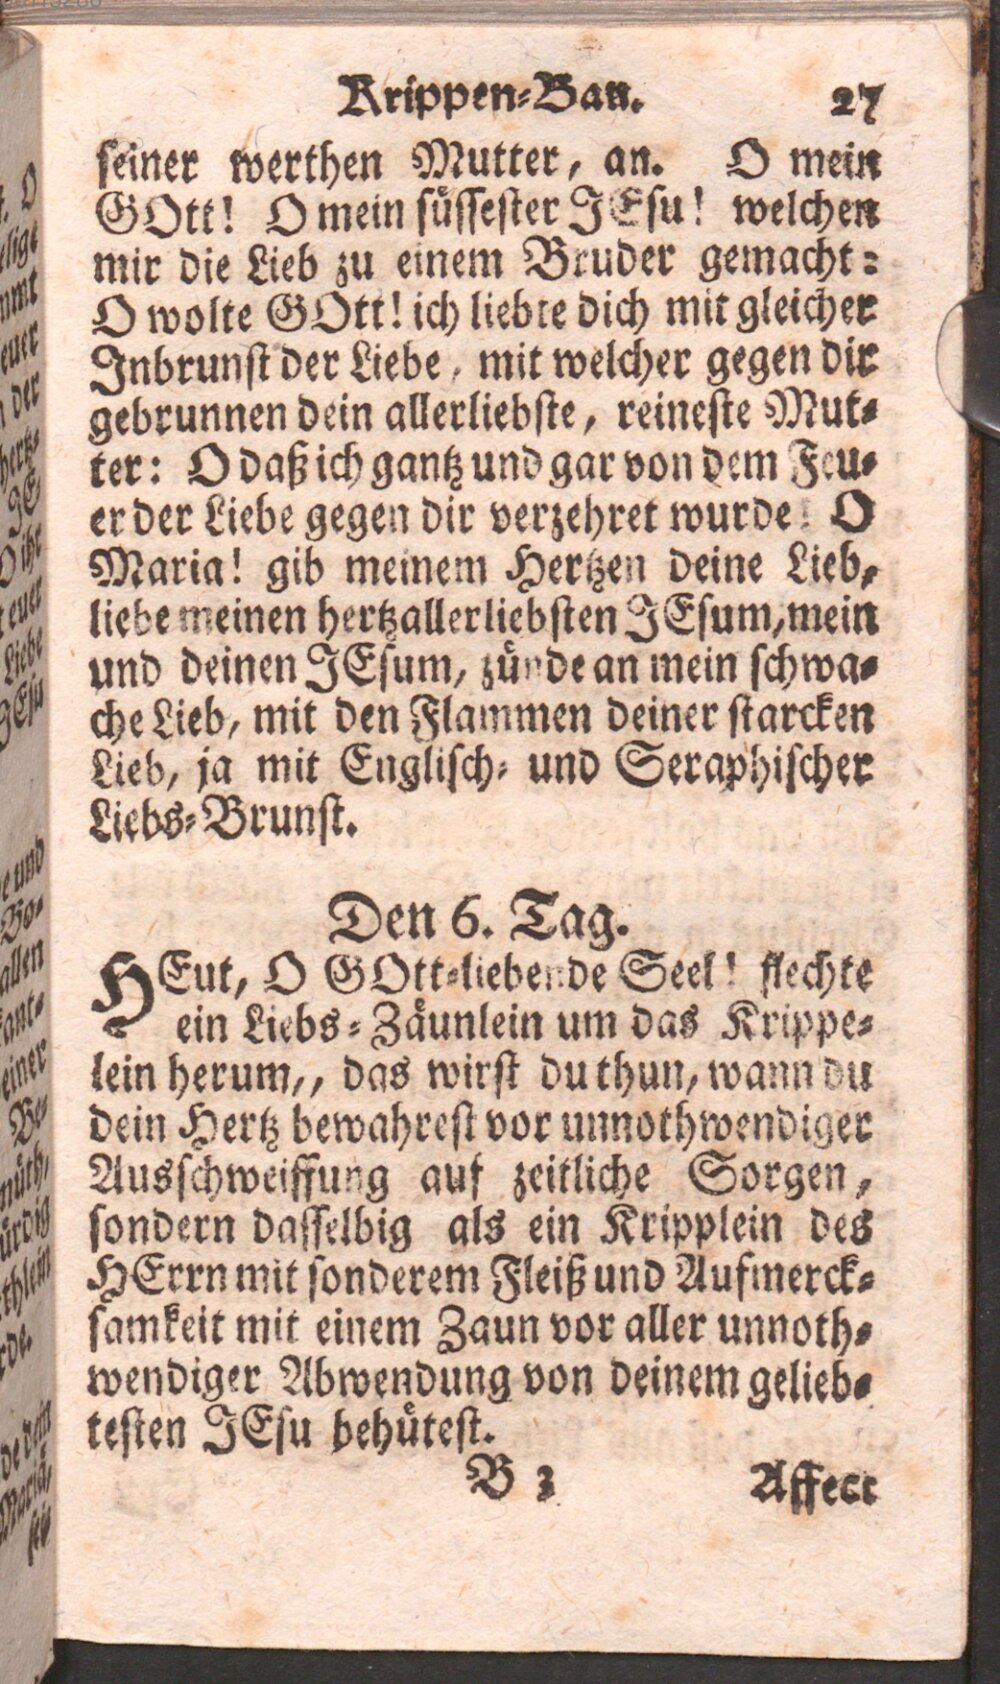 Krippen-Bau. 27
seiner werthen Mutter, an. O mein
GOtt! O mein süssester JEsu! welchen
mir die Lieb zu einem Bruder gemacht:
O wolte GOtt! ich liebte dich mit gleicher
Inbrunst der Liebe, mit welcher gegen dir
gebrunnen dein allerliebste, reineste Mut-
ter: O daß ich gantz und gar von dem Feu-
er der Liebe gegen dir verzehret wurde! O
Maria! gib meinem Hertzen deine Lieb,
liebe meinen hertzallerliebsten JEsum, mein
und deinen JEsum, zünde an mein schwa-
che Lieb, mit den Flammen deiner starcken
Lieb, ja mit Englisch- und Seraphischer
Liebs-Brunst.
Den 6. Tag.
HEut, O GOtt-liebende Seel! flechte
ein Liebs-Zäunlein um das Krippe-
lein herum,, das wirst du thun, wann du
dein Hertz bewahrest vor unnothwendiger
Ausschweiffung auf zeitliche Sorgen,
sondern dasselbig als ein Kripplein des
HErrn mit sonderem Fleiß und Aufmerck-
samkeit mit einem Zaun vor aller unnoth-
wendiger Abwendung von deinem gelieb-
testen JEsu behütest.
B 3 Affect